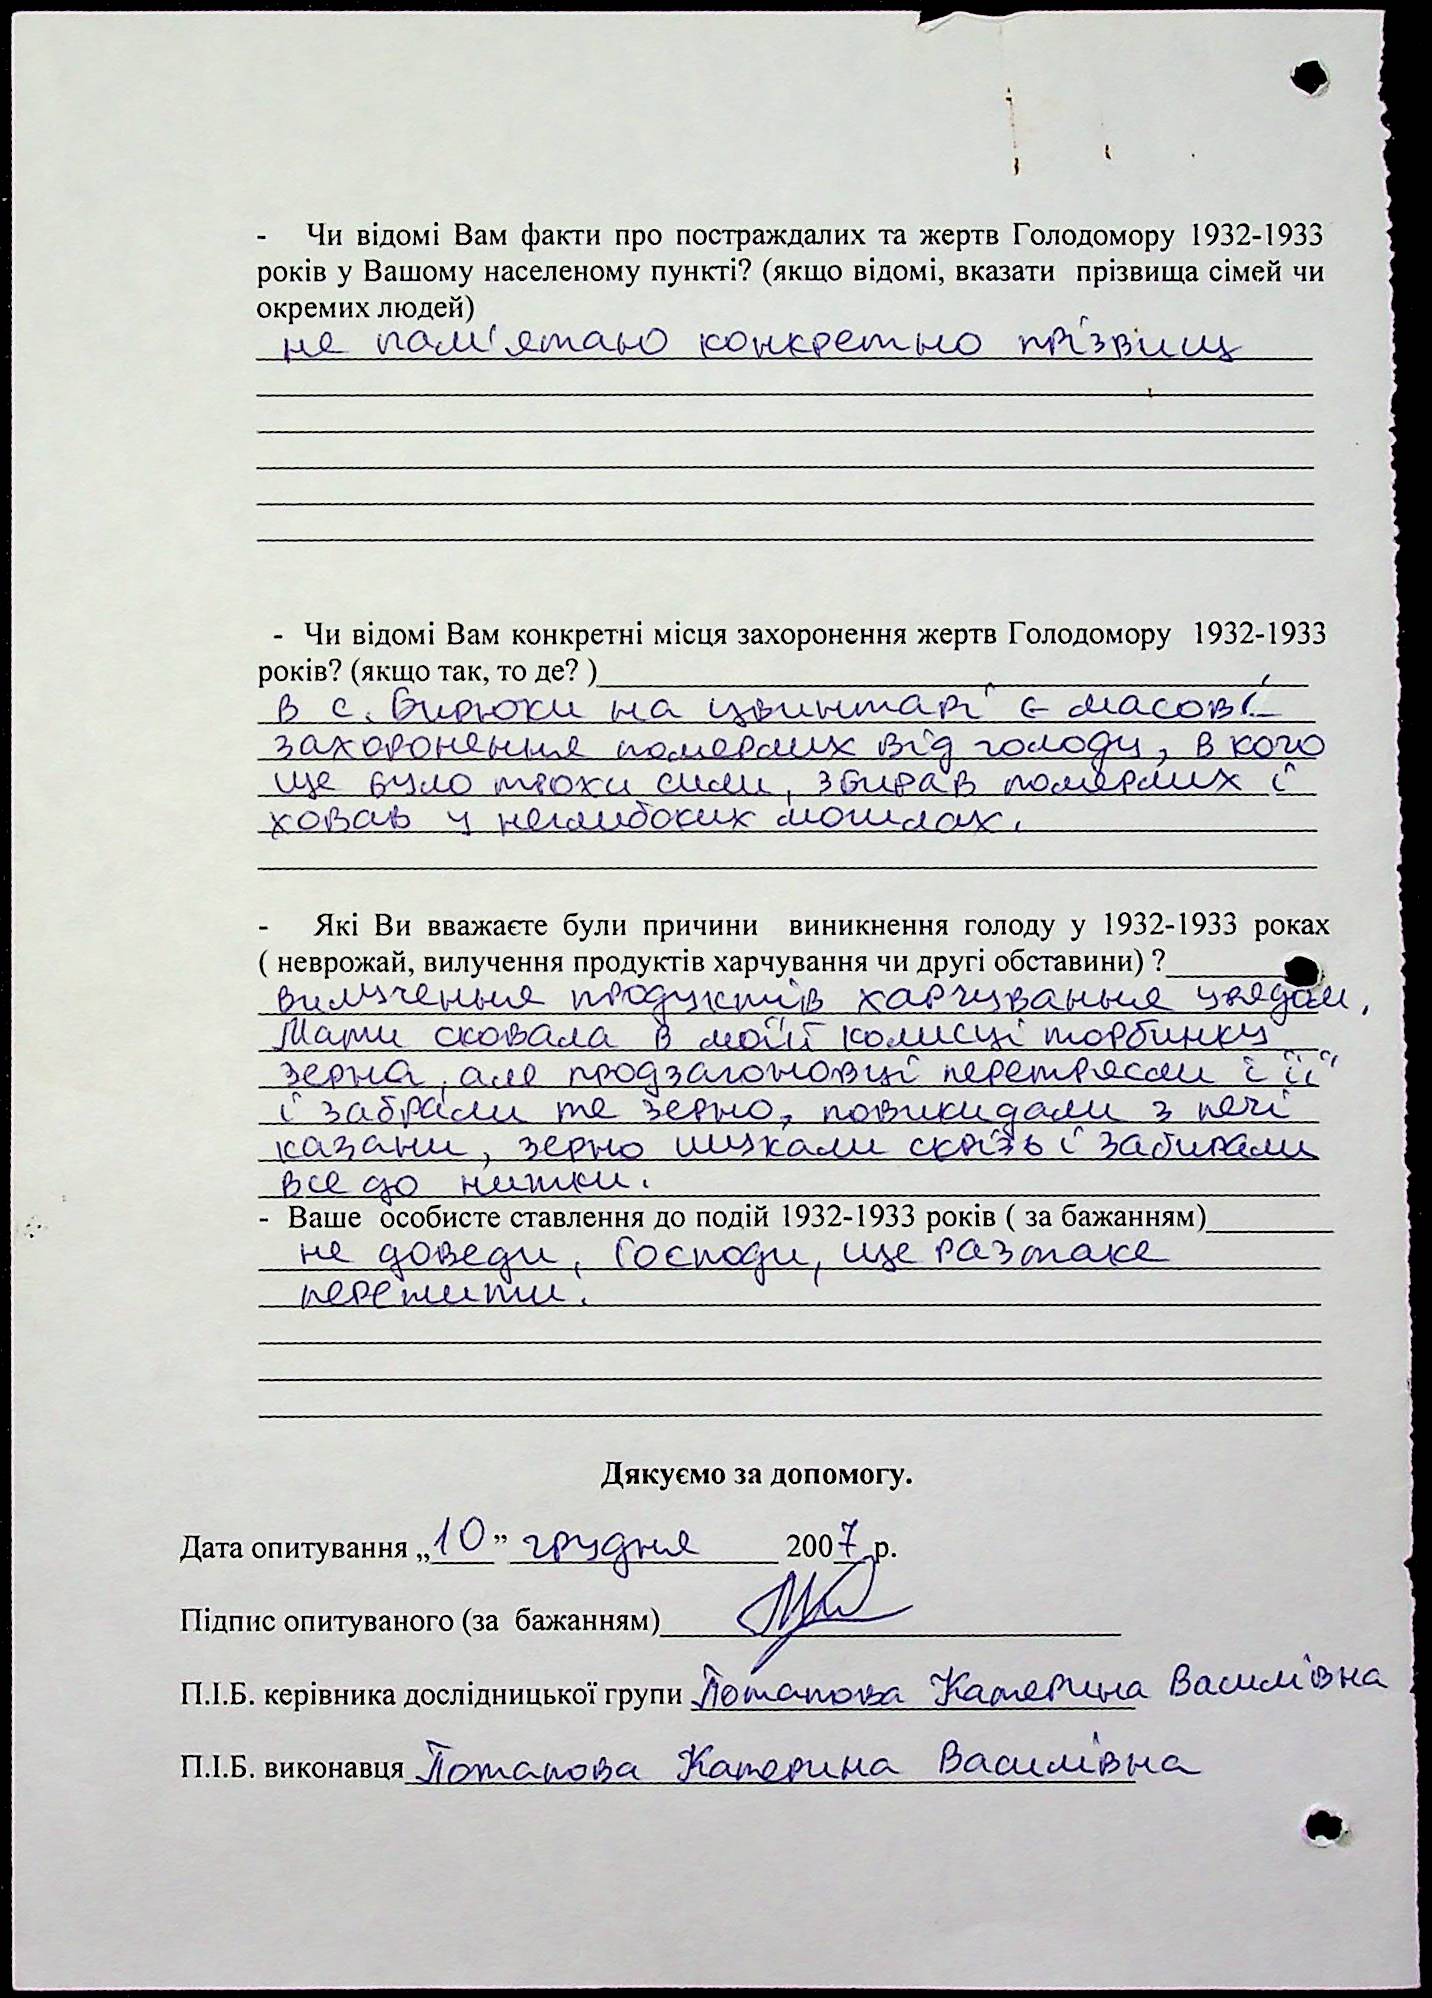 - Чи відомі Вам факти про постраждалих та жертв Голодомору 1932-1933
років у Вашому населеному пункті? (якщо відомі, вказати прізвища сімей чи
окремих людей)
не пам'ятаю конкретно прізвищ
- Чи відомі Вам конкретні місця захоронення жертв Голодомору 1932-1933
років? (якщо так, то де? )
в с. Бирюки на цвинтарі є масові
захоронення померлих від голоду, в кого
ще було трохи сили, збирав померлих і
ховав у неглибоких могилах.
- Які Ви вважаєте були причини виникнення голоду у 1932-1933 роках
( неврожай, вилучення продуктів харчування чи другі обставини) ?
вилучення продуктів харчування урядом.
Мати сховала в моїй колисці торбинку
зерна, але продзагоновці перетрясли і її
і забрали те зерно, повикидали з печі
казани, зерно шукали скрізь і забирали
все до нитки.
- Ваше особисте ставлення до подій 1932-1933 років ( за бажанням)
не доведи, Господи, ще раз таке
пережити.
Дякуємо за допомогу.
Дата опитування „10” грудня 2007 р.
Підпис опитуваного (за бажанням)
П.І.Б. керівника дослідницької групи Потапова Катерина Василівна
П.І.Б. виконавця Потапова Катерина Василівна